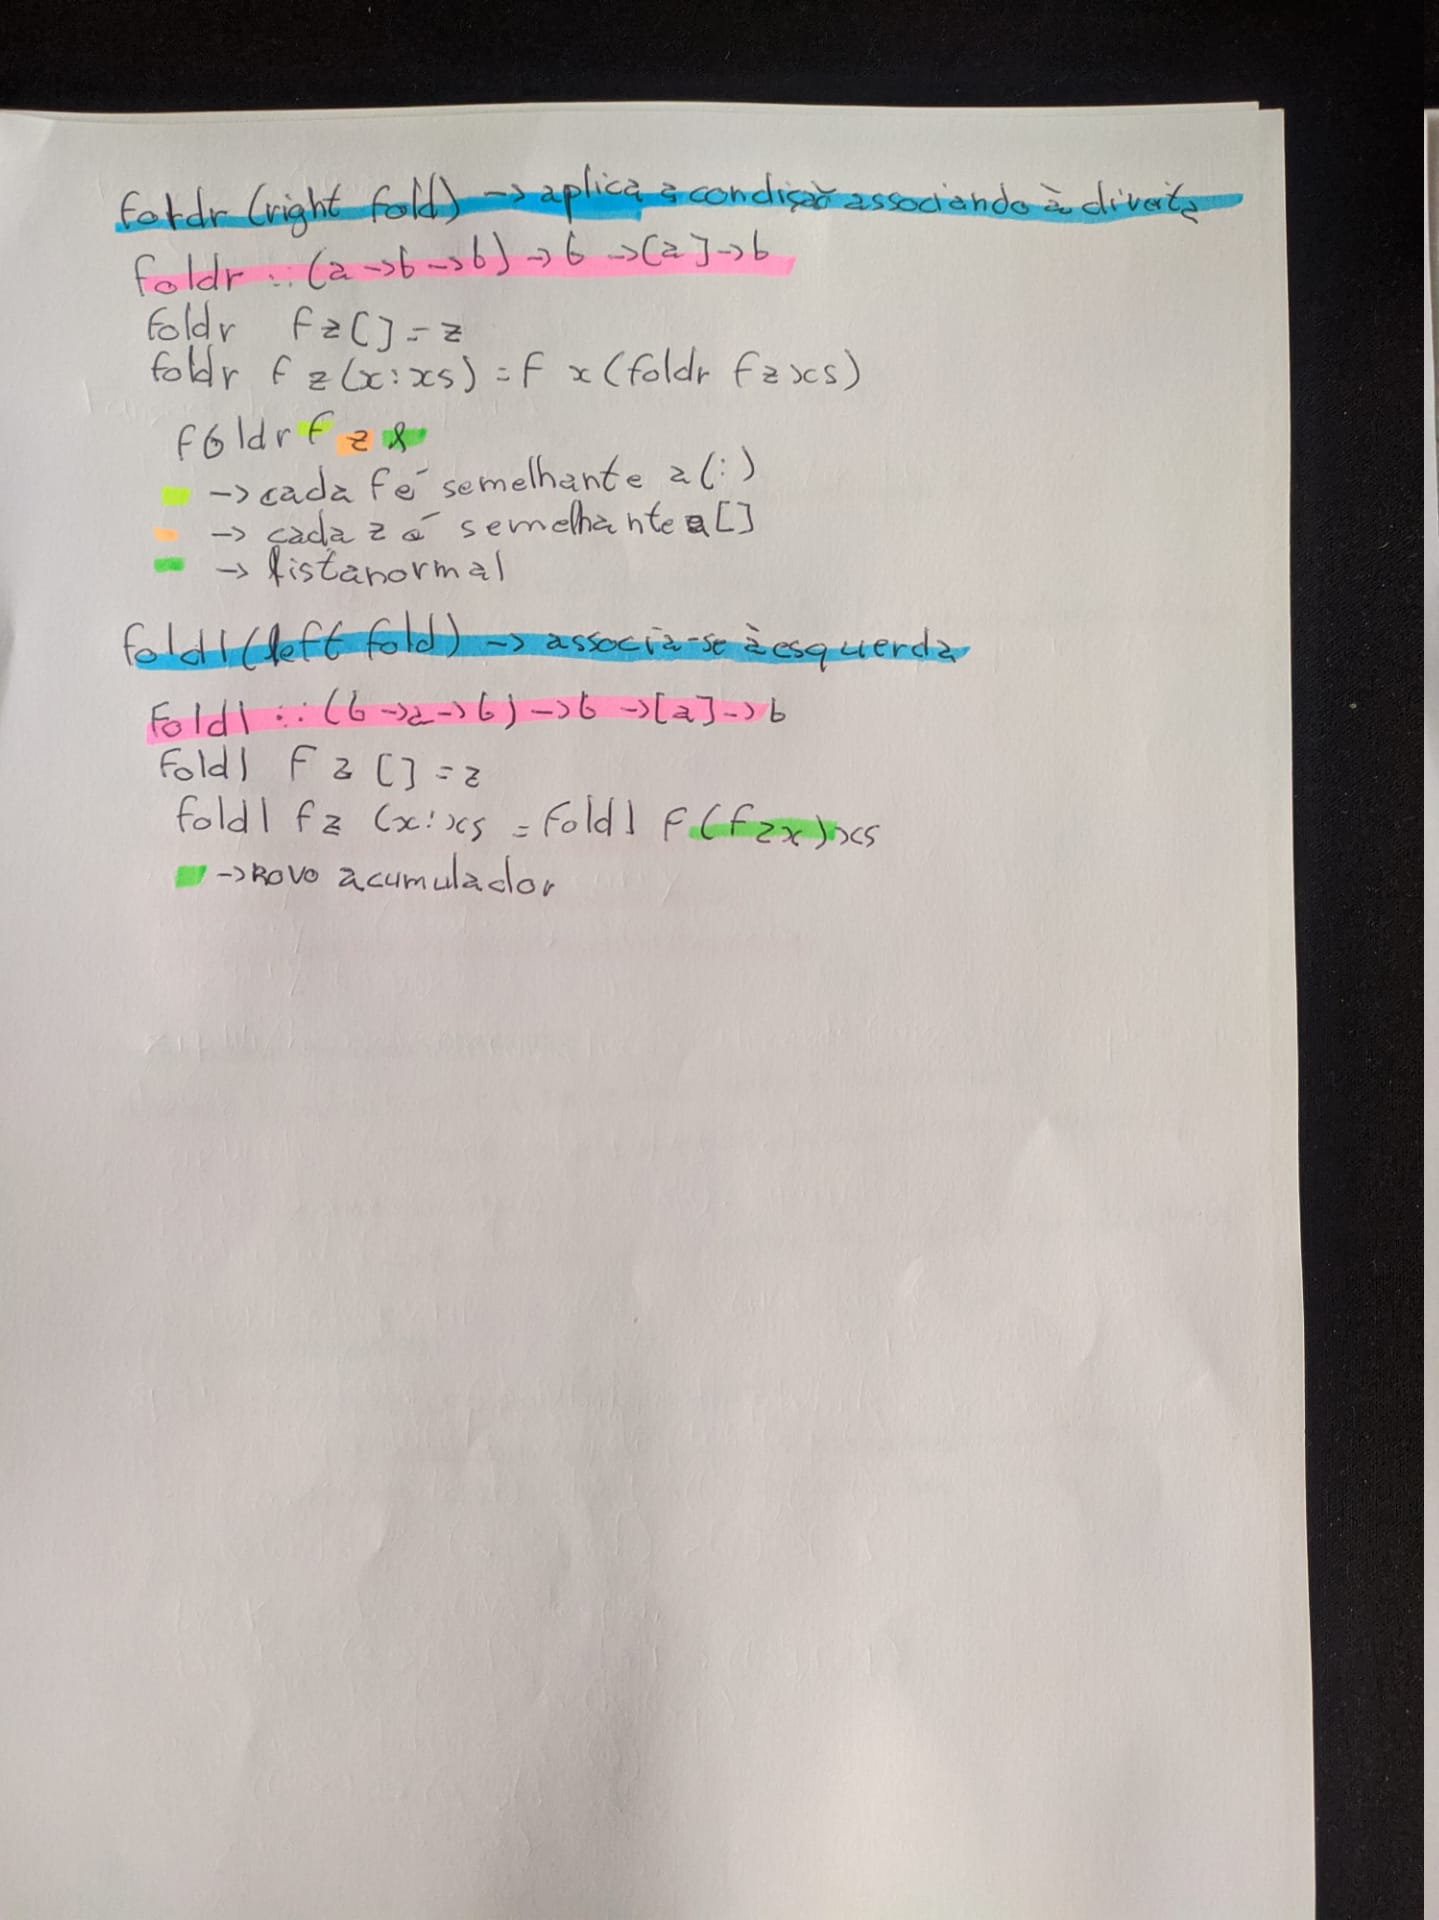 foldr (right fold) -> aplica a condição associando à direita
foldr :: (a ->b ->b) -> b ->[a]->b
foldr f z [] = z
foldr f z (x:xs) = f x (foldr f z xs)
foldr f z l
-> cada f é semelhante a (:)
-> cada z é semelhante a []
-> lista normal
foldl (left fold) -> associa-se à esquerda
foldl :: (b ->a ->b) ->b ->[a]->b
foldl f z [] = z
foldl f z (x:xs = foldl f (f z x) xs
-> novo acumulador